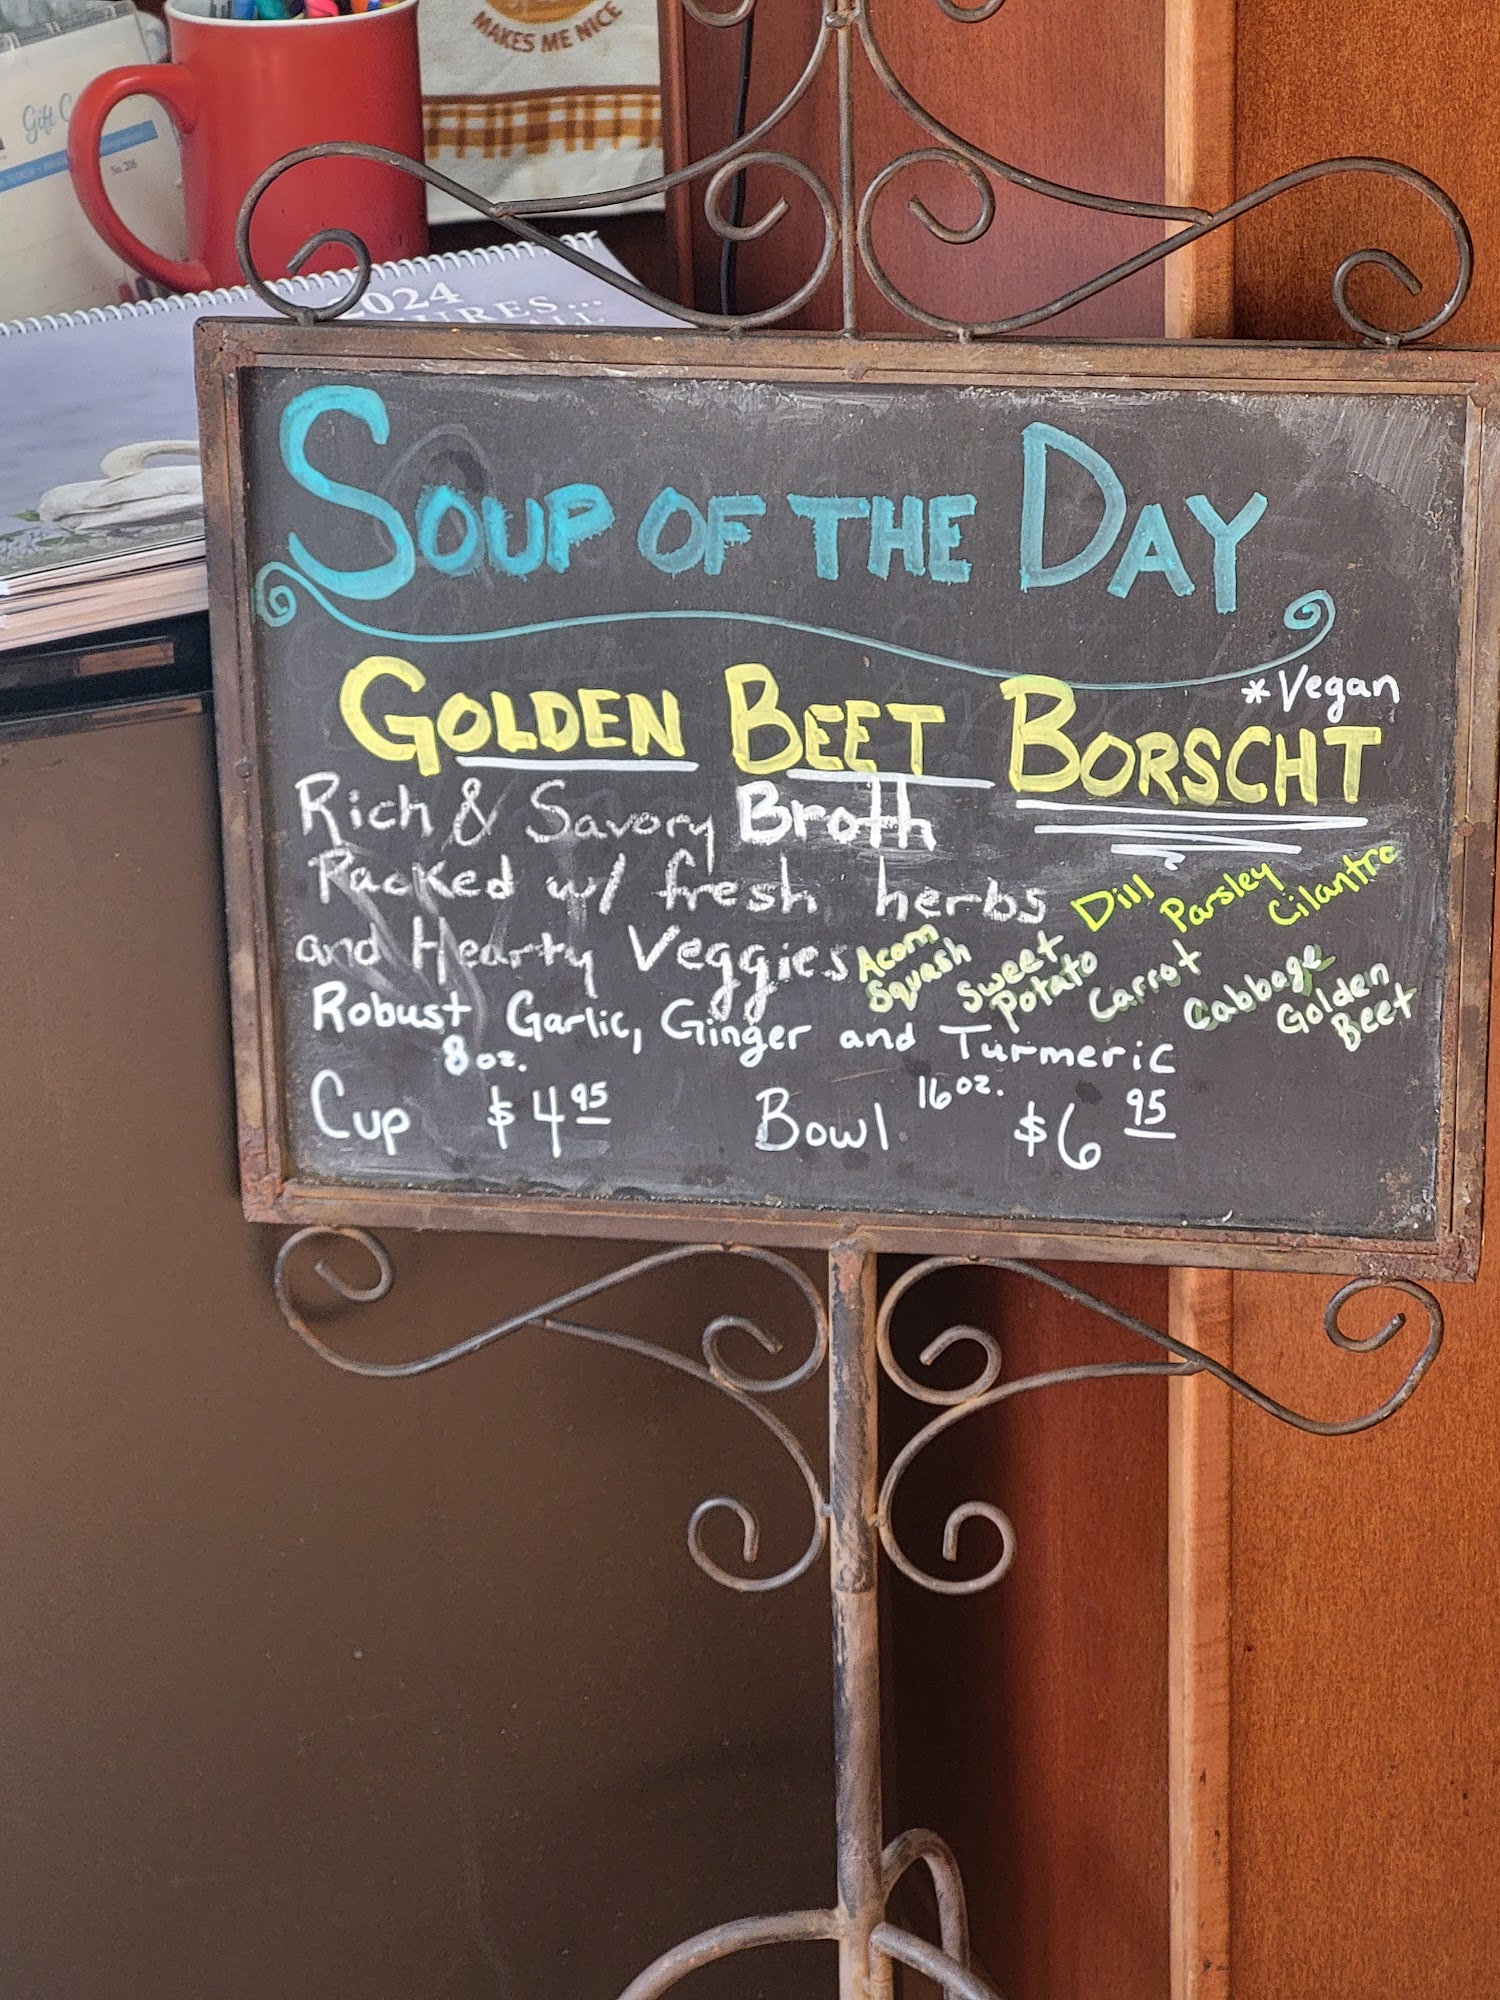 MAKES ME NICE
Gift
No. 208
2024
SOUP OF THE DAY
*Vegan
GOLDEN BEET BORSCHT
Rich & Savory Broth
Packed w/ fresh herbs Dill Parsley Cilantro
and Hearty Veggies Acorn Squash Sweet Potato Carrot Cabbage Golden Beet
Robust Garlic, Ginger and Turmeric
8 oz. 16 oz.
Cup $4 95 Bowl $6 95